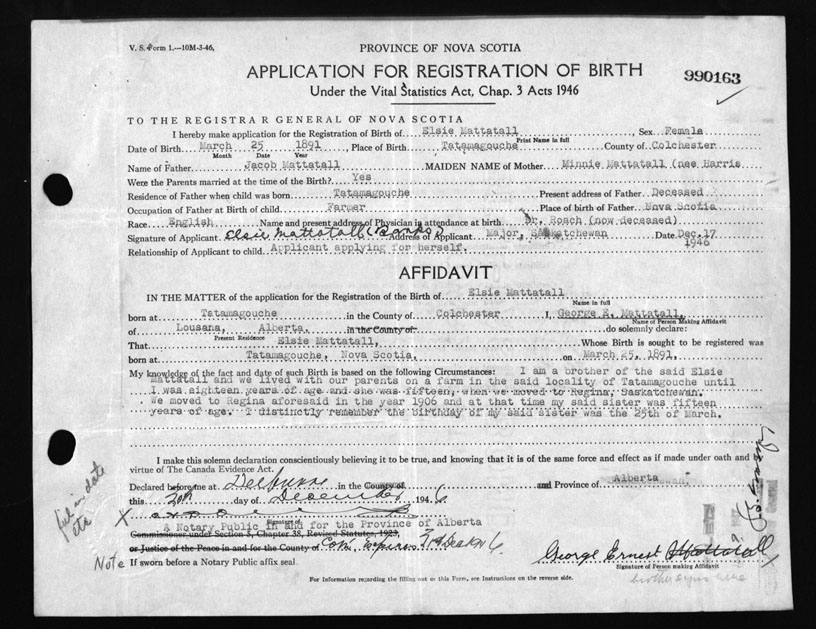 V. S. Form 1.—10M-3-46.
PROVINCE OF NOVA SCOTIA
APPLICATION FOR REGISTRATION OF BIRTH
990163
Under the Vital Statistics Act, Chap. 3 Acts 1946
TO THE REGISTRAR GENERAL OF NOVA SCOTIA
I hereby make application for the Registration of Birth of Elsie Mattatall, Sex Female
Print Name in full
Date of Birth March 25 1891, Place of Birth Tatamagouche County of Colchester
Month Date Year
Name of Father Jacob Mattatall MAIDEN NAME of Mother Minnie Mattatall (nee Harris
Were the Parents married at the time of the Birth? Yes
Residence of Father when child was born Tatamagouche Present address of Father Deceased
Occupation of Father at Birth of child Farmer Place of birth of Father Nova Scotia
Race English Name and present address of Physician in attendance at birth Dr. Roach (now deceased)
Signature of Applicant Elsie Mattatall (Banks) Address of Applicant Major, Saskatchewan Date Dec. 17
1946
Relationship of Applicant to child Applicant applying for herself.
AFFIDAVIT
IN THE MATTER of the application for the Registration of the Birth of Elsie Mattatall
Name in full
born at Tatamagouche in the County of Colchester I, George E. Mattatall,
Name of Person Making Affidavit
of Lousana, Alberta. in the County of do solemnly declare:
Present Residence
That Elsie Mattatall, Whose Birth is sought to be registered was
born at Tatamagouche, Nova Scotia, on March 25, 1891.
My knowledge of the fact and date of such Birth is based on the following Circumstances: I am a brother of the said Elsie
Mattatall and we lived with our parents on a farm in the said locality of Tatamagouche until
I was eighteen years of age and she was fifteen, when we moved to Regina, Saskatchewan.
We moved to Regina aforesaid in the year 1906 and at that time my said sister was fifteen
years of age. I distinctly remember the birthday of my said sister was the 25th of March.
I make this solemn declaration conscientiously believing it to be true, and knowing that it is of the same force and effect as if made under oath and by
virtue of The Canada Evidence Act.
Declared before me at Delburne in the County of and Province of Alberta
this 20th day of December 1946
Signature of
A Notary Public in and for the Province of Alberta
Commissioner under Section 5, Chapter 38, Revised Statutes, 1923,
or Justice of the Peace in and for the County of Com. expires
George Ernest Mattatall
Note If sworn before a Notary Public affix seal.
Signature of Person making Affidavit
brother signs here
For Information regarding the filling out of this Form, see Instructions on the reverse side.
fill in date
etc